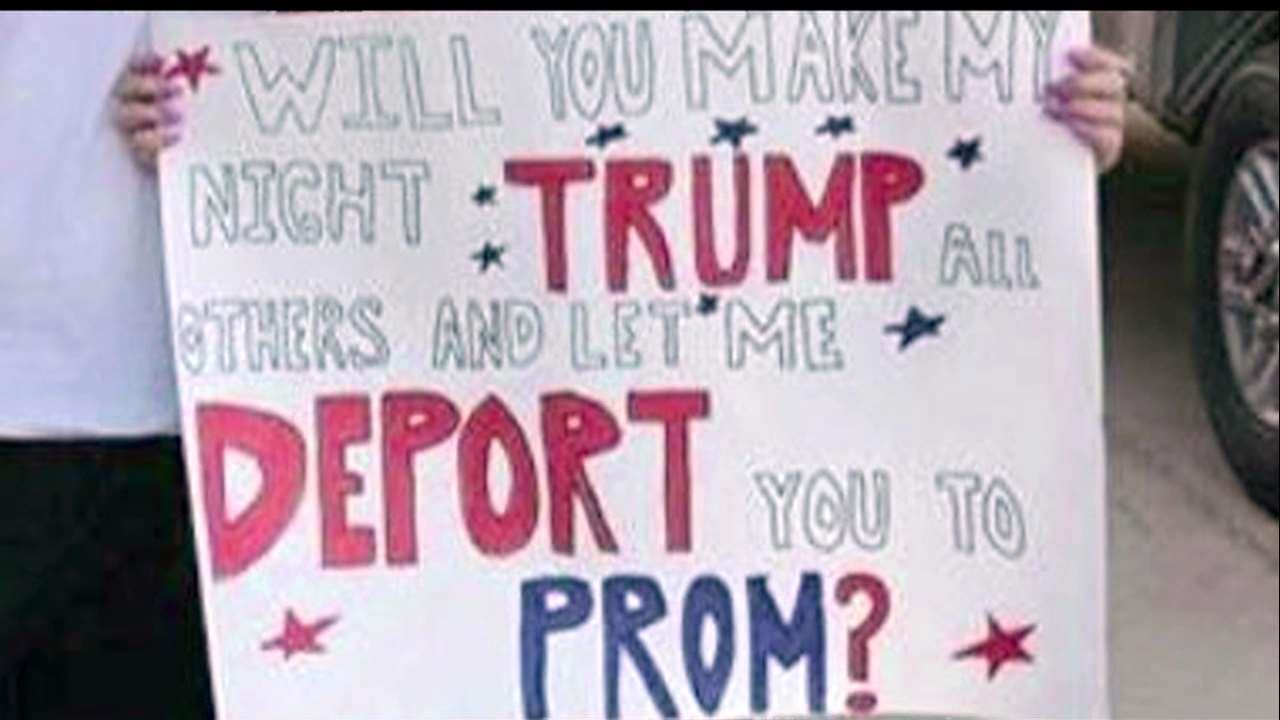 WILL YOU MAKE MY
NIGHT TRUMP ALL
OTHERS AND LET ME
DEPORT YOU TO
PROM?